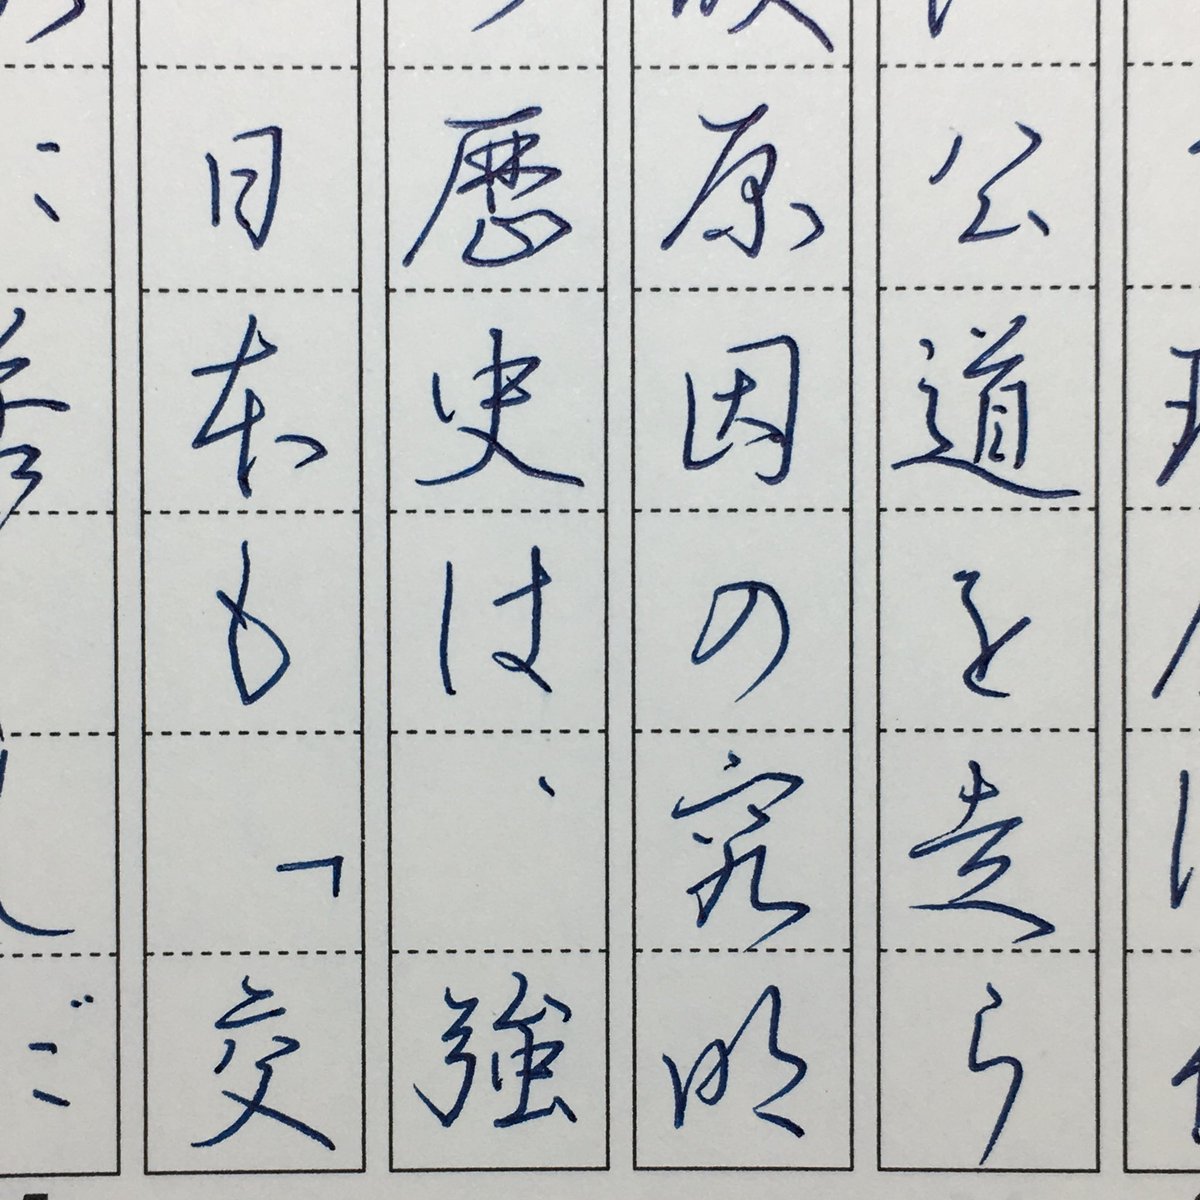 公道を走ら
原因の究明
歴史は、強
日本も「交